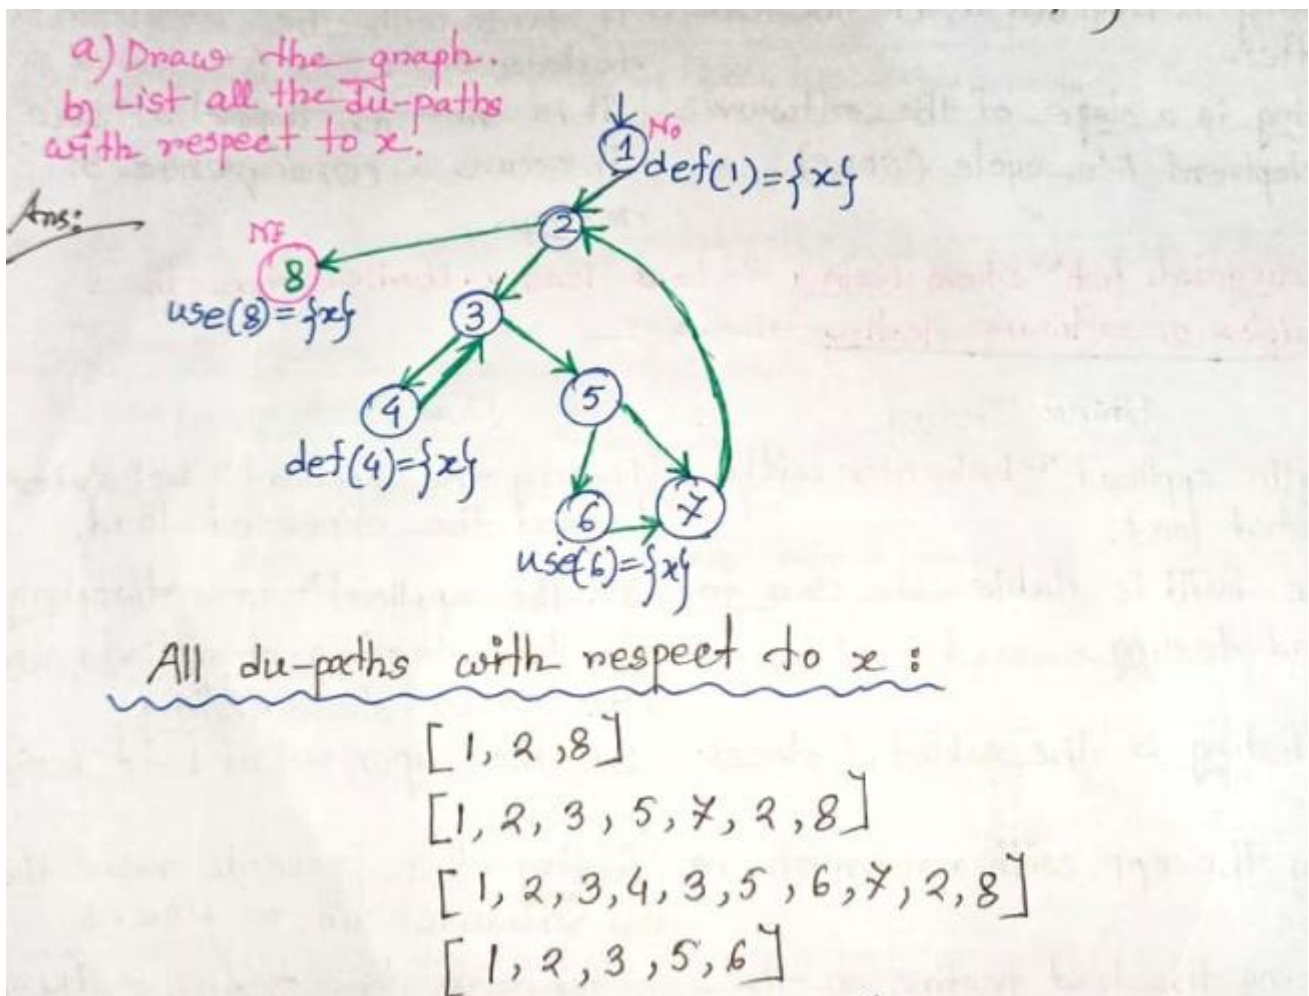 a) Draw the graph.
b) List all the du-paths
with respect to x.
Ans:
N0
1
def(1)={x}
2
Nf
8
use(8)={x}
3
4
def(4)={x}
5
6
7
use(6)={x}
All du-paths with respect to x :
[1, 2, 8]
[1, 2, 3, 5, 7, 2, 8]
[1, 2, 3, 4, 3, 5, 6, 7, 2, 8]
[1, 2, 3, 5, 6]